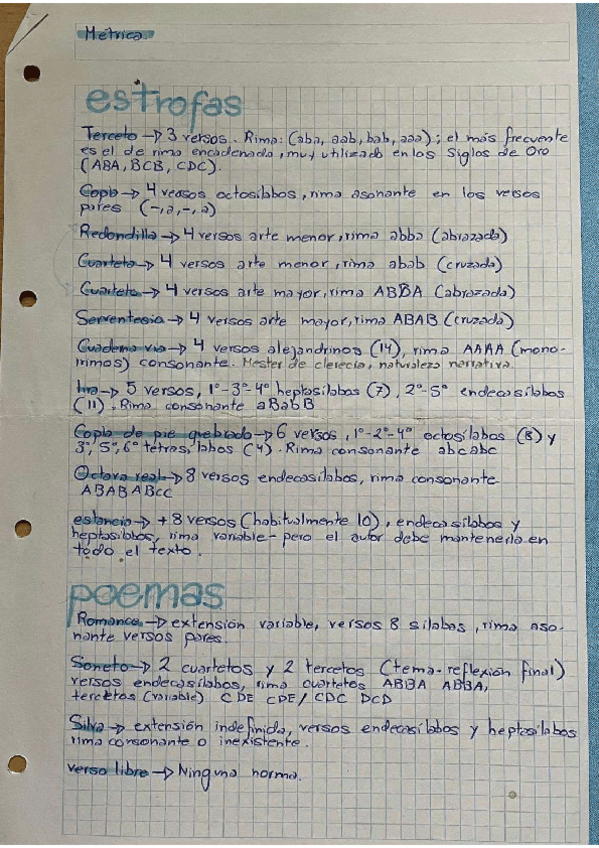 Métrica
estrofas
Terceto → 3 versos. Rima: (aba, aab, bab, aaa); el más frecuente
es el de rima encadenada, muy utilizado en los Siglos de Oro
(ABA, BCB, CDC).
Copla → 4 versos octosílabos, rima asonante en los versos
pares (-,a,-,a)
Redondilla → 4 versos arte menor, rima abba (abrazada)
Cuarteta → 4 versos arte menor, rima abab (cruzada)
Cuarteto → 4 versos arte mayor, rima ABBA (abrazada)
Serventesio → 4 versos arte mayor, rima ABAB (cruzada)
Cuaderna vía → 4 versos alejandrinos (14), rima AAAA (mono-
rrimos) consonante. Mester de clerecía, naturaleza narrativa.
lira → 5 versos, 1º-3º-4º heptasílabos (7), 2º-5º endecasílabos
(11). Rima consonante aBabB
Copla de pie quebrado → 6 versos, 1º-2º-4º octosílabos (8) y
3º, 5º, 6º tetrasílabos (4). Rima consonante abcabc
Octava real → 8 versos endecasílabos, rima consonante
ABABABCC
estancia → +8 versos (habitualmente 10), endecasílabos y
heptasílabos, rima variable - pero el autor debe mantenerla en
todo el texto.
poemas
Romance → extensión variable, versos 8 sílabas, rima aso-
nante versos pares.
Soneto → 2 cuartetos y 2 tercetos (tema-reflexión final)
versos endecasílabos, rima cuartetos ABBA ABBA,
tercetos (variable) CDE CDE/ CDC DCD
Silva → extensión indefinida, versos endecasílabos y heptasílabos
rima consonante o inexistente.
verso libre → Ninguna norma.